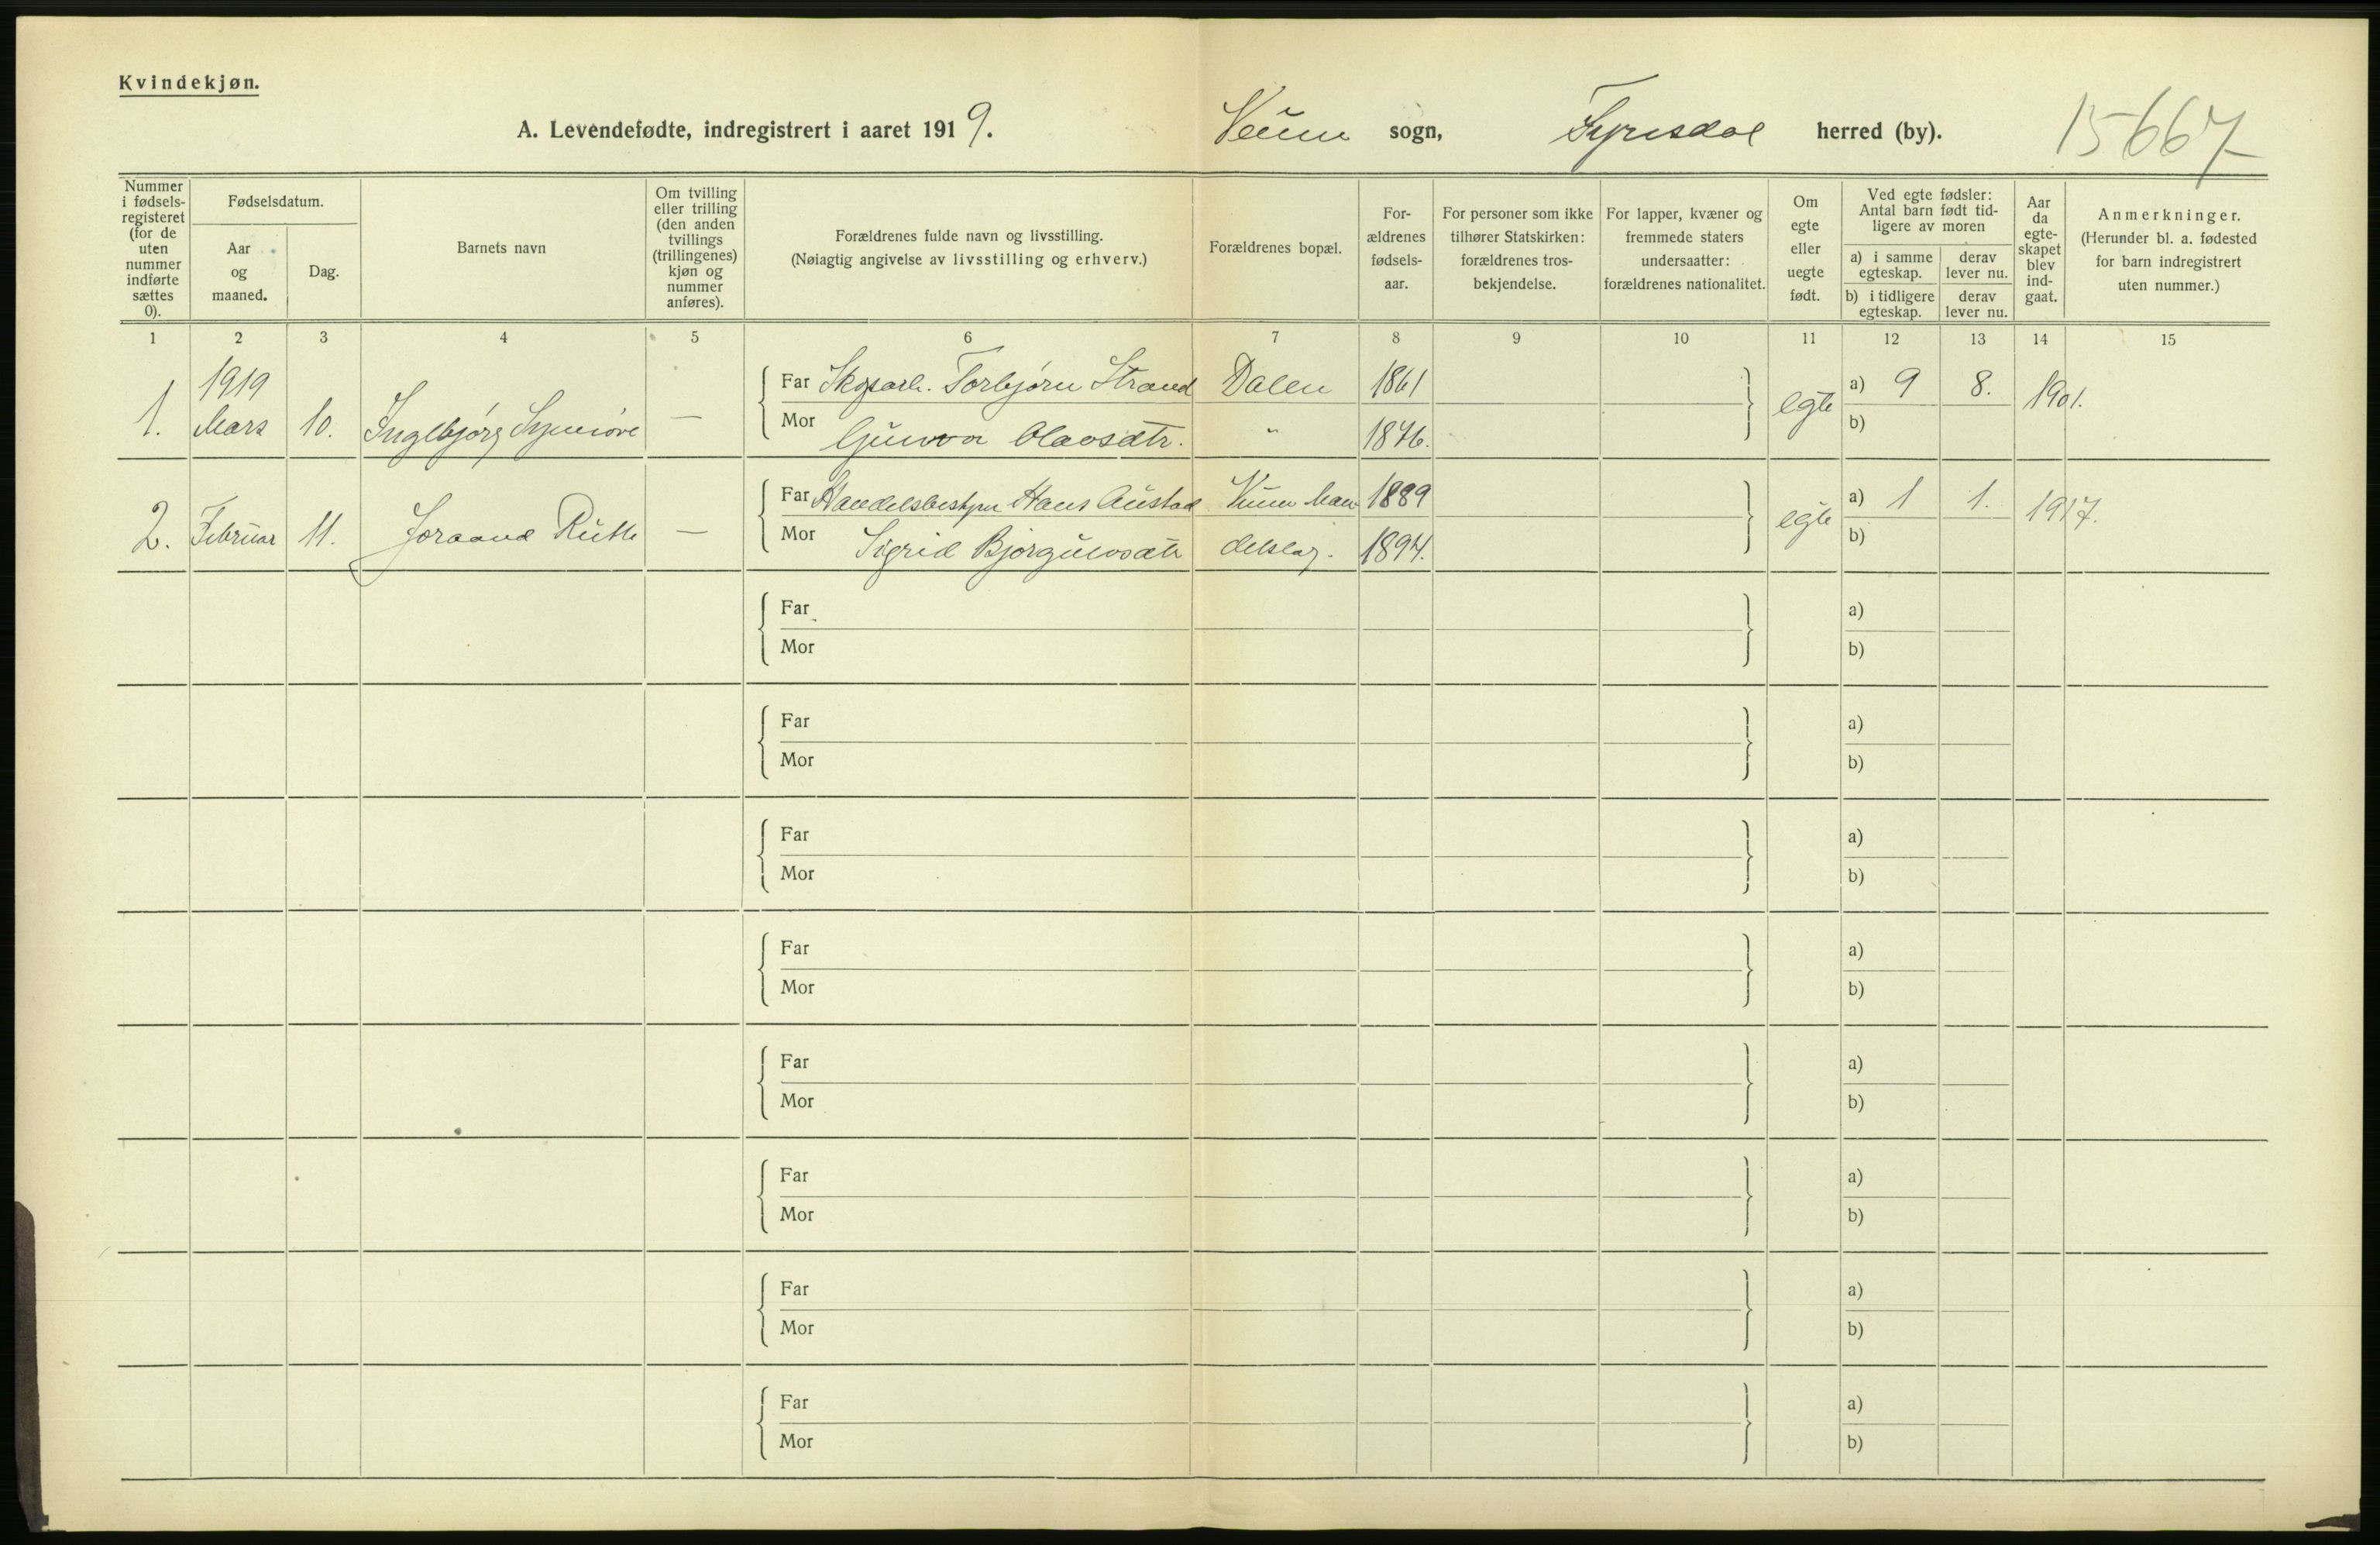 Kvindekjøn.
A. Levendefødte, indregistrert i aaret 1919. Veum sogn, Fyresdal herred (by). 15667
Nummer i fødsels-registeret (for de uten nummer indførte sættes 0).
Fødselsdatum.
Aar og maaned.
Dag.
Barnets navn
Om tvilling eller trilling (den anden tvillings (trillingenes) kjøn og nummer anføres).
Forældrenes fulde navn og livsstilling.
(Nøiagtig angivelse av livsstilling og erhverv.)
Forældrenes bopæl.
For-ældrenes fødsels-aar.
For personer som ikke tilhører Statskirken: forældrenes tros-bekjendelse.
For lapper, kvæner og fremmede staters undersaatter: forældrenes nationalitet.
Om egte eller uegte født.
Ved egte fødsler: Antal barn født tid-ligere av moren
a) i samme egteskap.
derav lever nu.
b) i tidligere egteskap.
derav lever nu.
Aar da egte-skapet blev ind-gaat.
Anmerkninger.
(Herunder bl. a. fødested for barn indregistrert uten nummer.)
1 2 3 4 5 6 7 8 9 10 11 12 13 14 15
1919
Far Skogsarb. Torbjørn Strand Dalen 1861 a) 9 8.
1. Mars 10. Ingebjørg Synnøve — egte 1901.
Mor Gunvor Olavsdtr. " 1876. b)
Far Handelsbestyr Hans Austad Veum Han- 1889 a) 1 1.
2. Februar 11. Joraand Ruth — egte 1917.
Mor Sigrid Bjørgulvsdtr delslag. 1894. b)
Far a)
Mor b)
Far a)
Mor b)
Far a)
Mor b)
Far a)
Mor b)
Far a)
Mor b)
Far a)
Mor b)
Far a)
Mor b)
Far a)
Mor b)